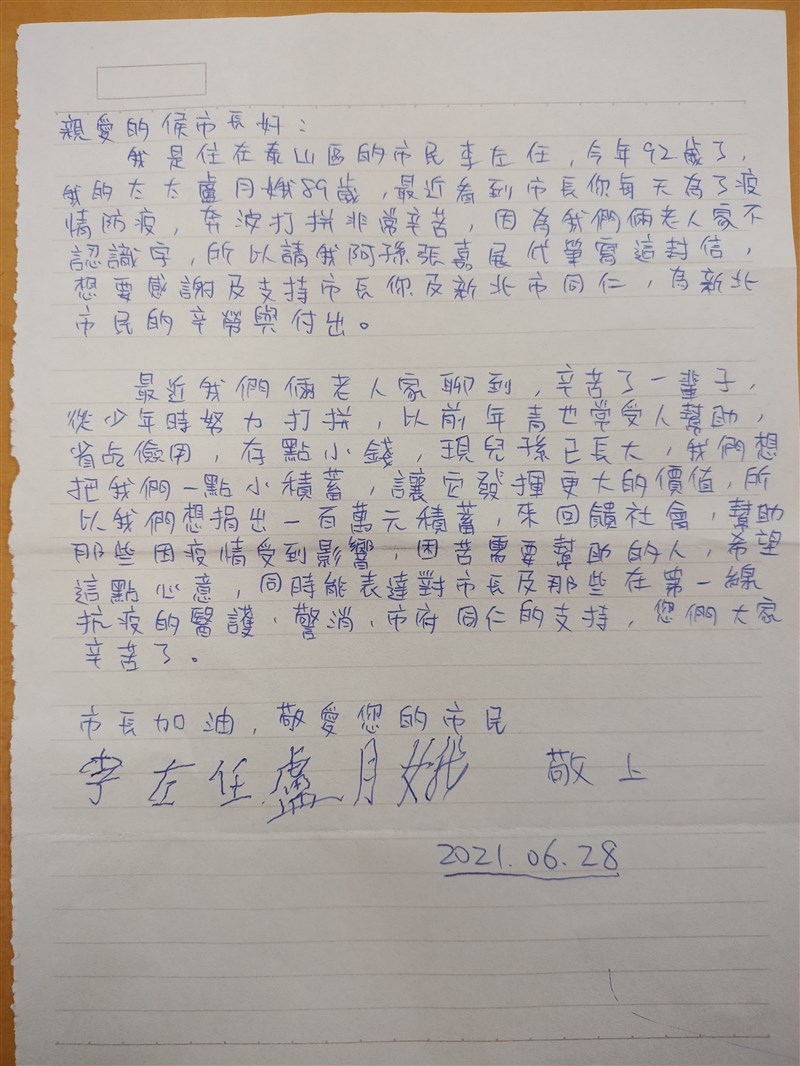 親愛的候市長好：
我是住在泰山區的市民李左任，今年92歲了，
我的太太盧月娥89歲，最近看到市長你每天為了疫
情防疫，奔波打拼非常辛苦，因為我們倆老人家不
認識字，所以請我阿孫張嘉展代筆寫這封信，
想要感謝及支持市長你及新北市同仁，為新北
市民的辛勞與付出。
最近我們倆老人家聊到，辛苦了一輩子，
從少年時努力打拼，以前年青也常受人幫助，
省吃儉用，存點小錢，現兒孫已長大，我們想
把我們一點小積蓄，讓它發揮更大的價值，所
以我們想捐出一百萬元積蓄，來回饋社會，幫助
那些因疫情受到影響，困苦需要幫助的人，希望
這點心意，同時能表達對市長及那些在第一線
抗疫的醫護、警消、市府同仁的支持，您們大家
辛苦了。
市長加油，敬愛您的市民
李左任 盧月娥 敬上
2021.06.28